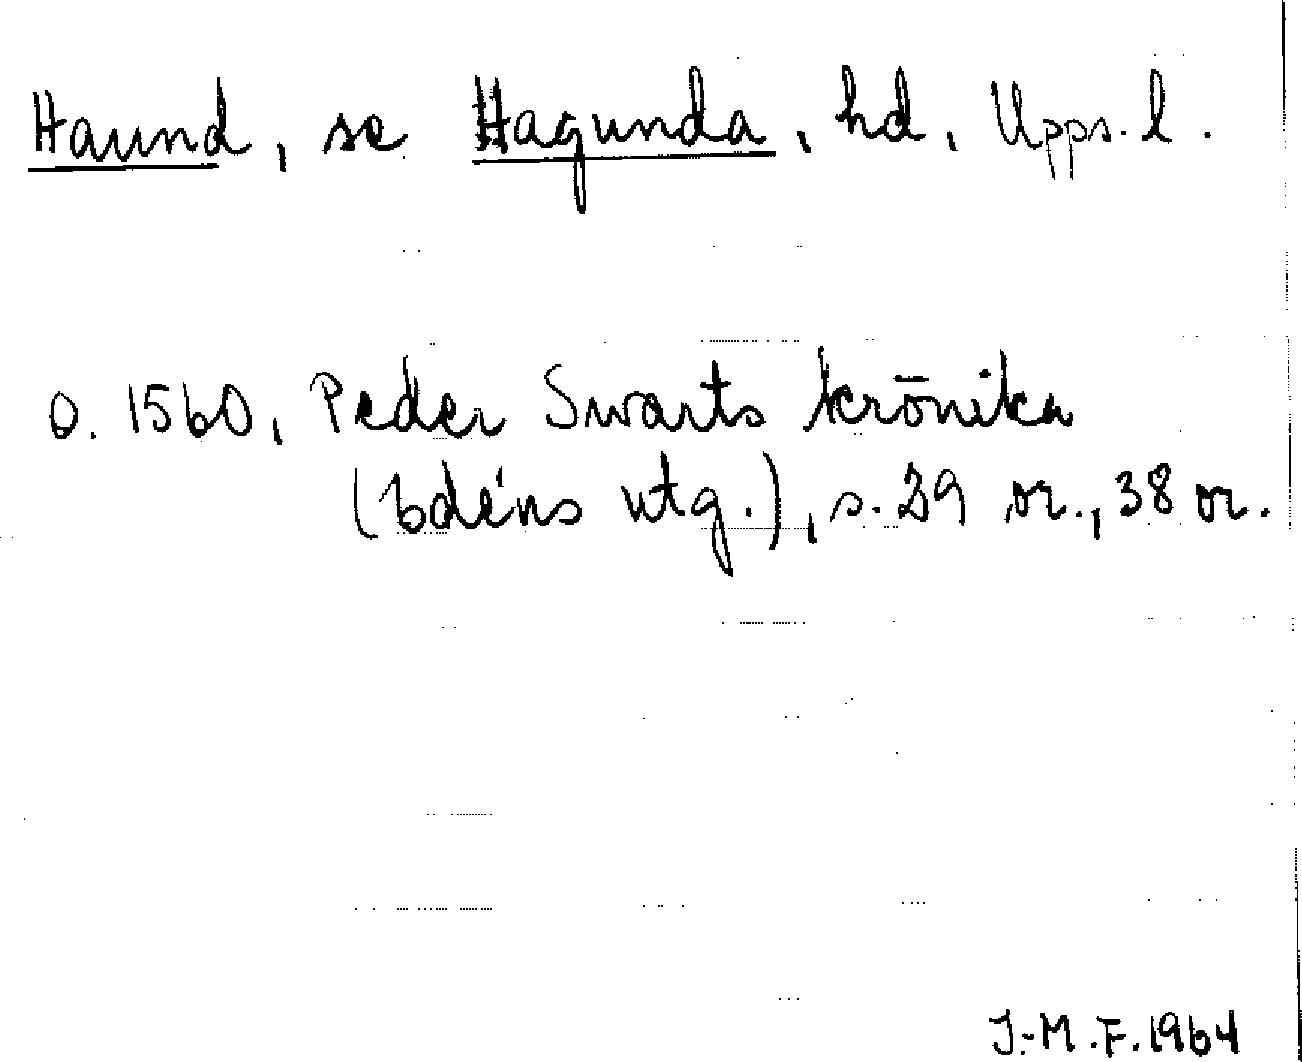 Haund, se Hagunda, hd, Upps. l.
o. 1560, Peder Swarts krönika
(Edéns utg.), s. 39 or., 38 or.
J.-M.F. 1964